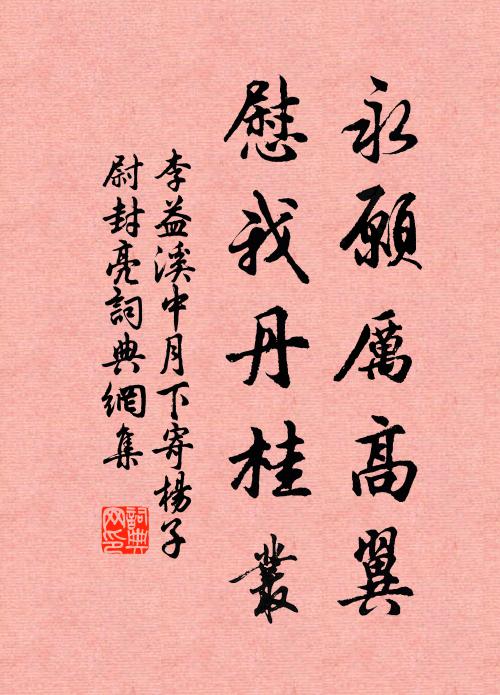 永願厲高翼
慰我丹桂叢
李益溪中月下寄楊子
尉封亮詞典網集
詞典
网印